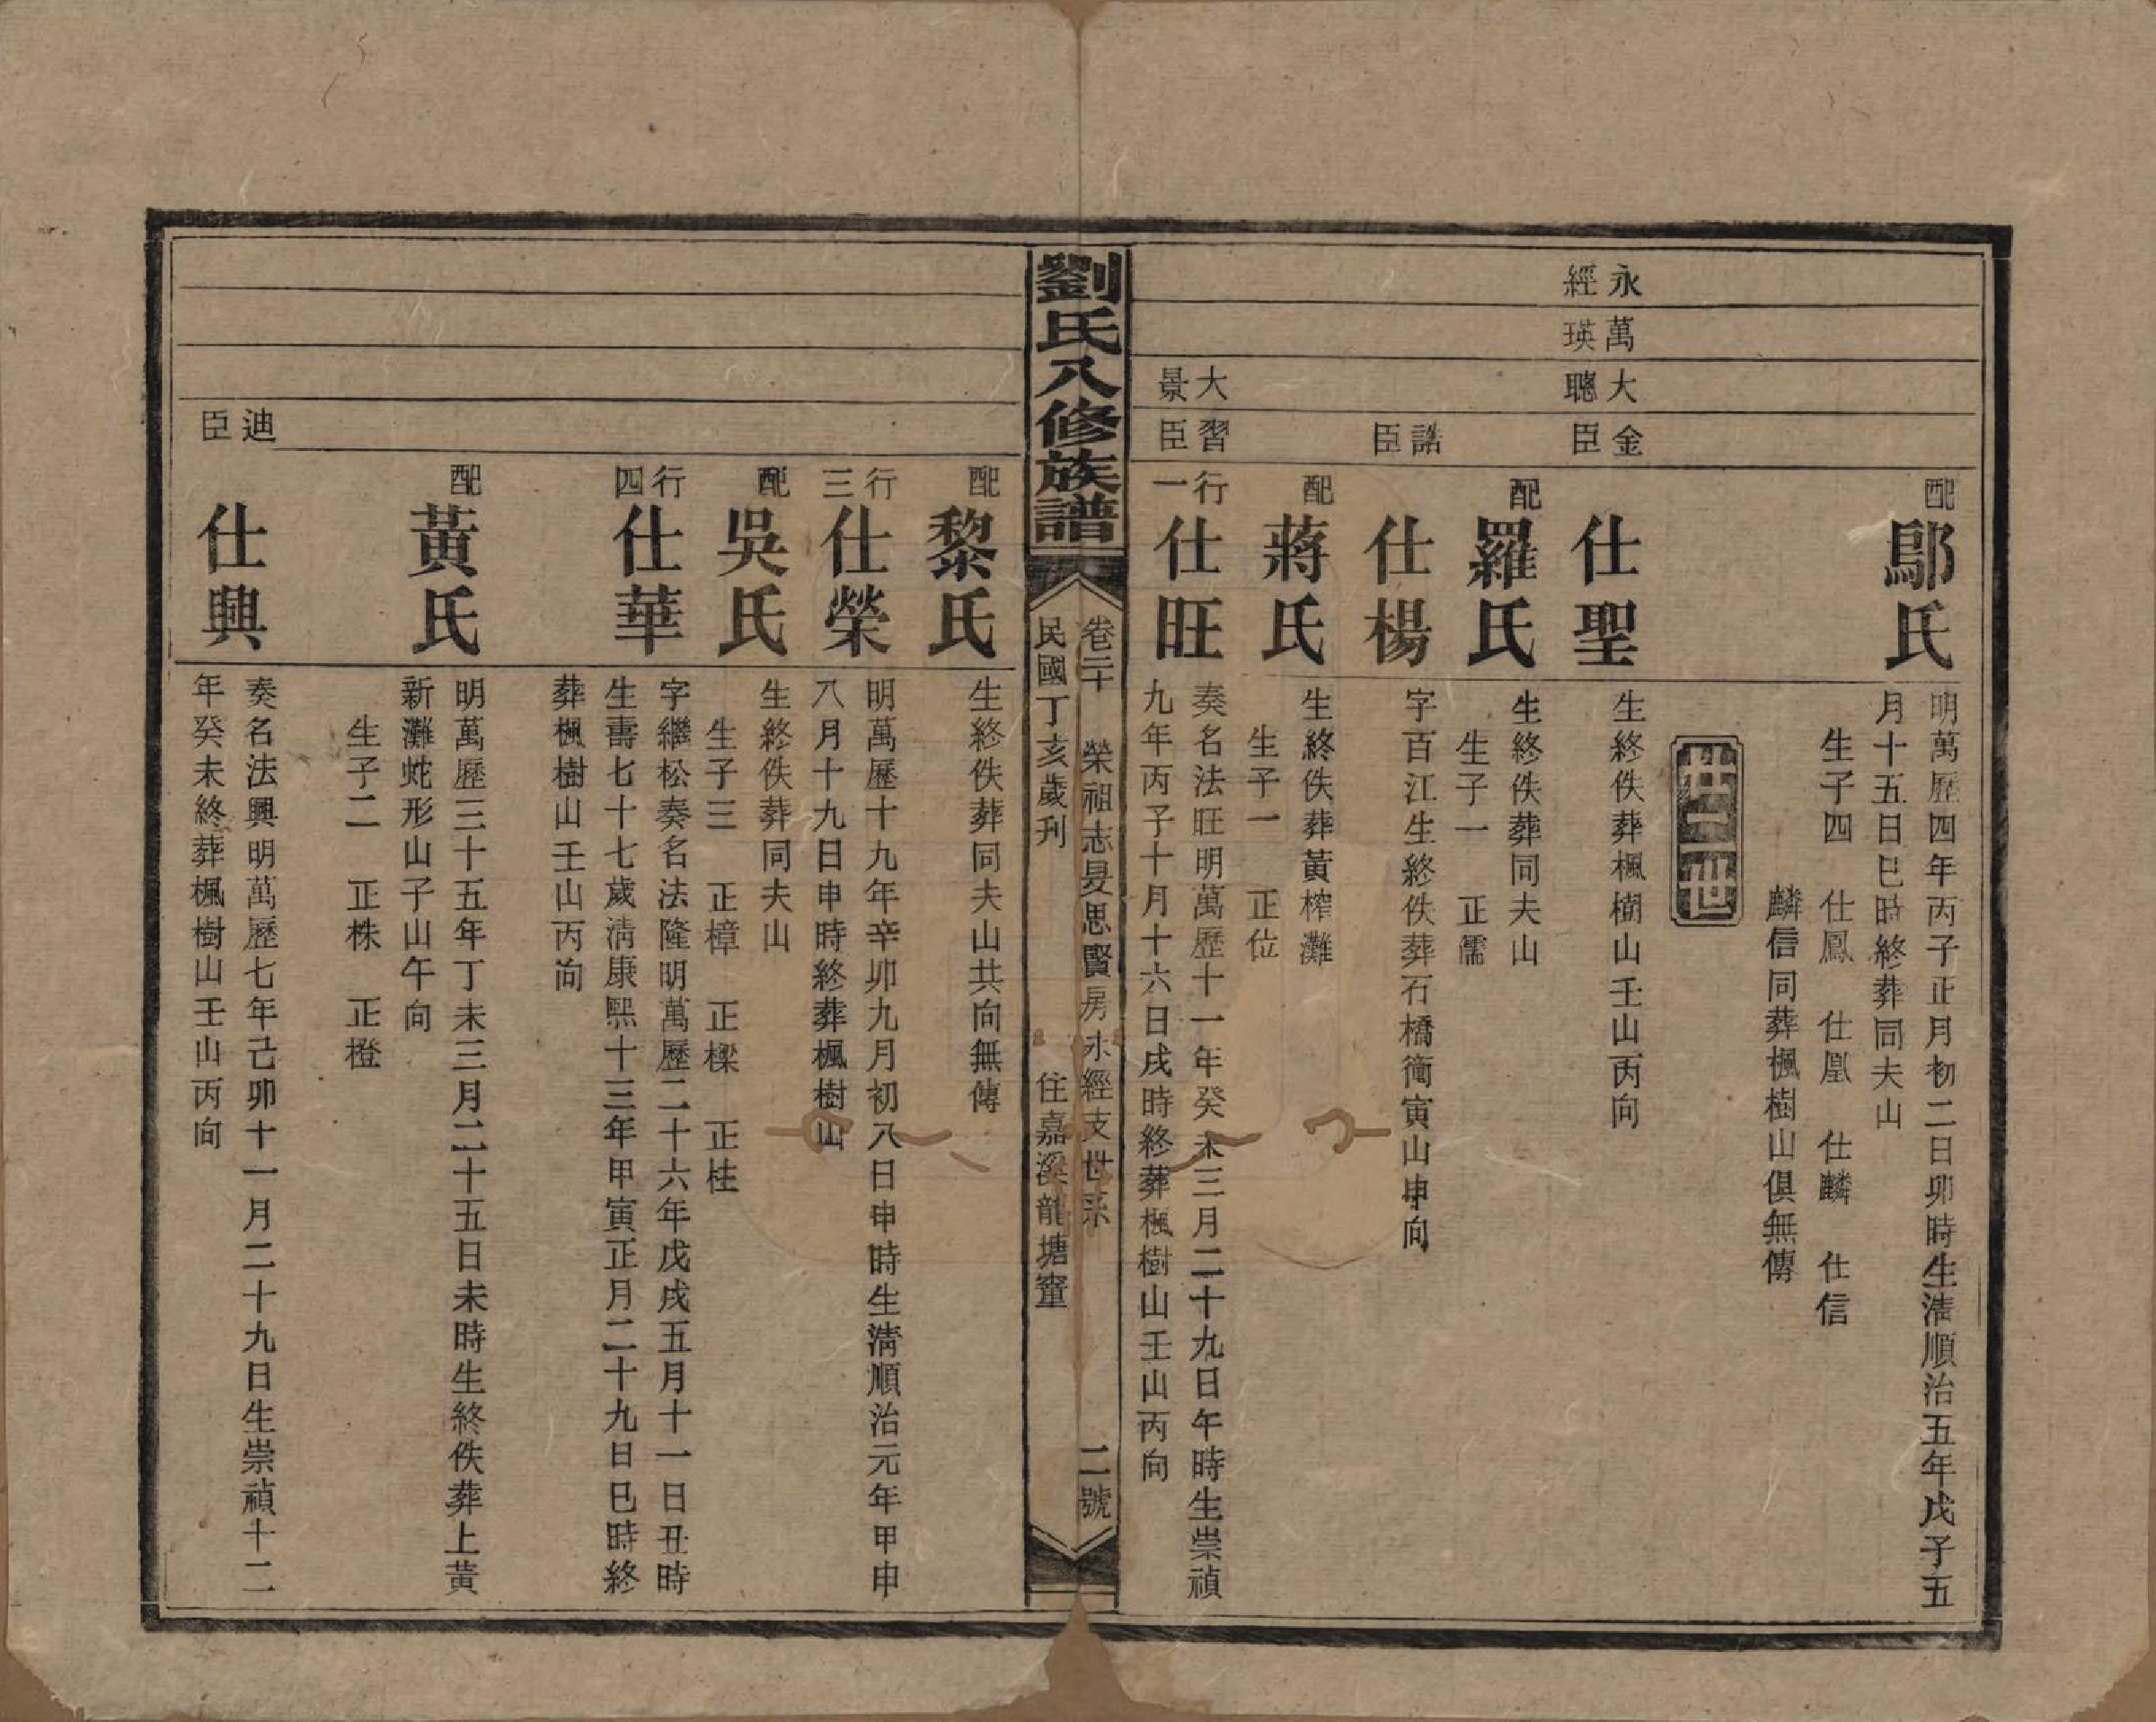 配
鄔氏
明萬歷四年丙子正月初二日卯時生清順治五年戊子五
月十五日巳時終葬同夫山
生子四　仕鳳　仕凰　仕麟　仕信
麟信同葬楓樹山俱無傳
廿二世
永經
萬瑛
大聰
金臣
仕聖
生終佚葬楓樹山壬山丙向
配
羅氏
生終佚葬同夫山
生子一　正儒
誥臣
仕楊
字百江生終佚葬石橋衝寅山申向
配
蔣氏
生終佚葬黃榨灘
生子一　正位
大景
習臣
行一
仕旺
奏名法旺明萬歷十一年癸未三月二十九日午時生崇禎
九年丙子十月十六日戌時終葬楓樹山壬山丙向
劉氏八修族譜
卷二十　榮祖志旻思賢房永經支世系　二號
民國丁亥歲刋　住嘉溪龍塘窰
配
黎氏
生終佚葬同夫山共向無傳
行三
仕榮
明萬歷十九年辛卯九月初八日申時生淸順治元年甲申
八月十九日申時終葬楓樹山
配
吳氏
生終佚葬同夫山
生子三　正樟　正樑　正桂
行四
仕華
字繼松奏名法隆明萬歷二十六年戊戌五月十一日丑時
生壽七十七歲淸康熙十三年甲寅正月二十九日巳時終
葬楓樹山壬山丙向
配
黃氏
明萬歷三十五年丁未三月二十五日未時生終佚葬上黃
新灘蛇形山子山午向
生子二　正株　正橙
迪臣
仕興
奏名法興明萬歷七年己卯十一月二十九日生崇禎十二
年癸未終葬楓樹山壬山丙向